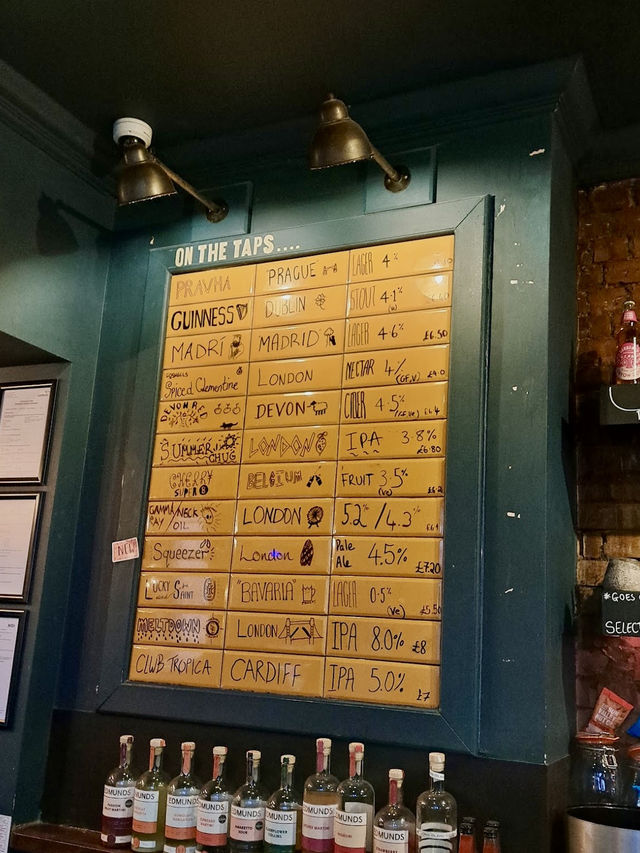 ON THE TAPS....
PRAVHA PRAGUE LAGER 4%
GUINNESS DUBLIN STOUT 4.1% (V)
MADRÍ MADRID LAGER 4.6% £6.50
Spiced Clementine LONDON NECTAR 4% (GF,V)
DEVON DEVON CIDER 4.5% £6.4
SUMMER CHUG LONDON IPA 3.8% £6.80
CHERRY SUPER 8 BELGIUM FRUIT 3.5% (Ve) £6.2
GAMMA RAY/NECK OIL LONDON 5.2%/4.3%
NEW Squeezer London Pale Ale 4.5% £7.20
LUCKY SAINT "BAVARIA" LAGER 0.5% (Ve) £5.50
MELTDOWN LONDON IPA 8.0% £8
CLUB TROPICA CARDIFF IPA 5.0% £7
*GOES
SELECT
EDMUNDS
EDMUNDS
EDMUNDS
EDMUNDS
EDMUNDS
AMARETTO SOUR